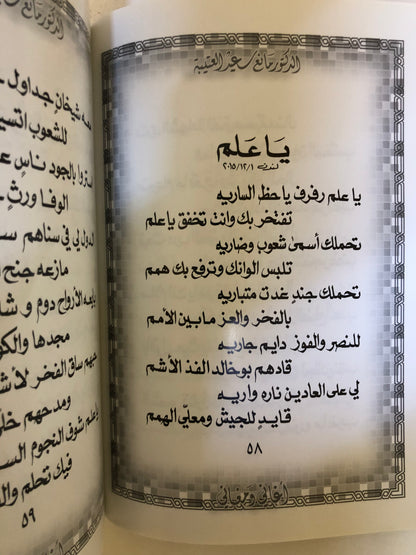 الدكتور مانع سعيد العتيبة
يَا عَلم
لندن ٢٠١٥/١٢/١
يا علم رفرف يا حظ الساريه
تفتخر بك وانت تخفق يا علم
تحملك أسمى شعوب وضاريه
تلبس الوانك وترفع بك همم
تحملك جند غدت متباريه
بالفخر والعز ما بين الأمم
للنصر والفوز دايم جاريه
قادهم بوخالد الفذ الأشم
لي على العادين ناره واريه
قايد للجيش ومعلّي الهمم
٥٨
أغاني ومغاني
الدكتور مانع سـ
شيخان جداول
للشعوب
بالجود ناس
الوفا
الدول لي في سناهم
مازعه جنح
الأرواح دوم و
مجدها
ساق الفخر
ومدحهم
يا علم شوف النجوم
فيك تحلم
٥٩